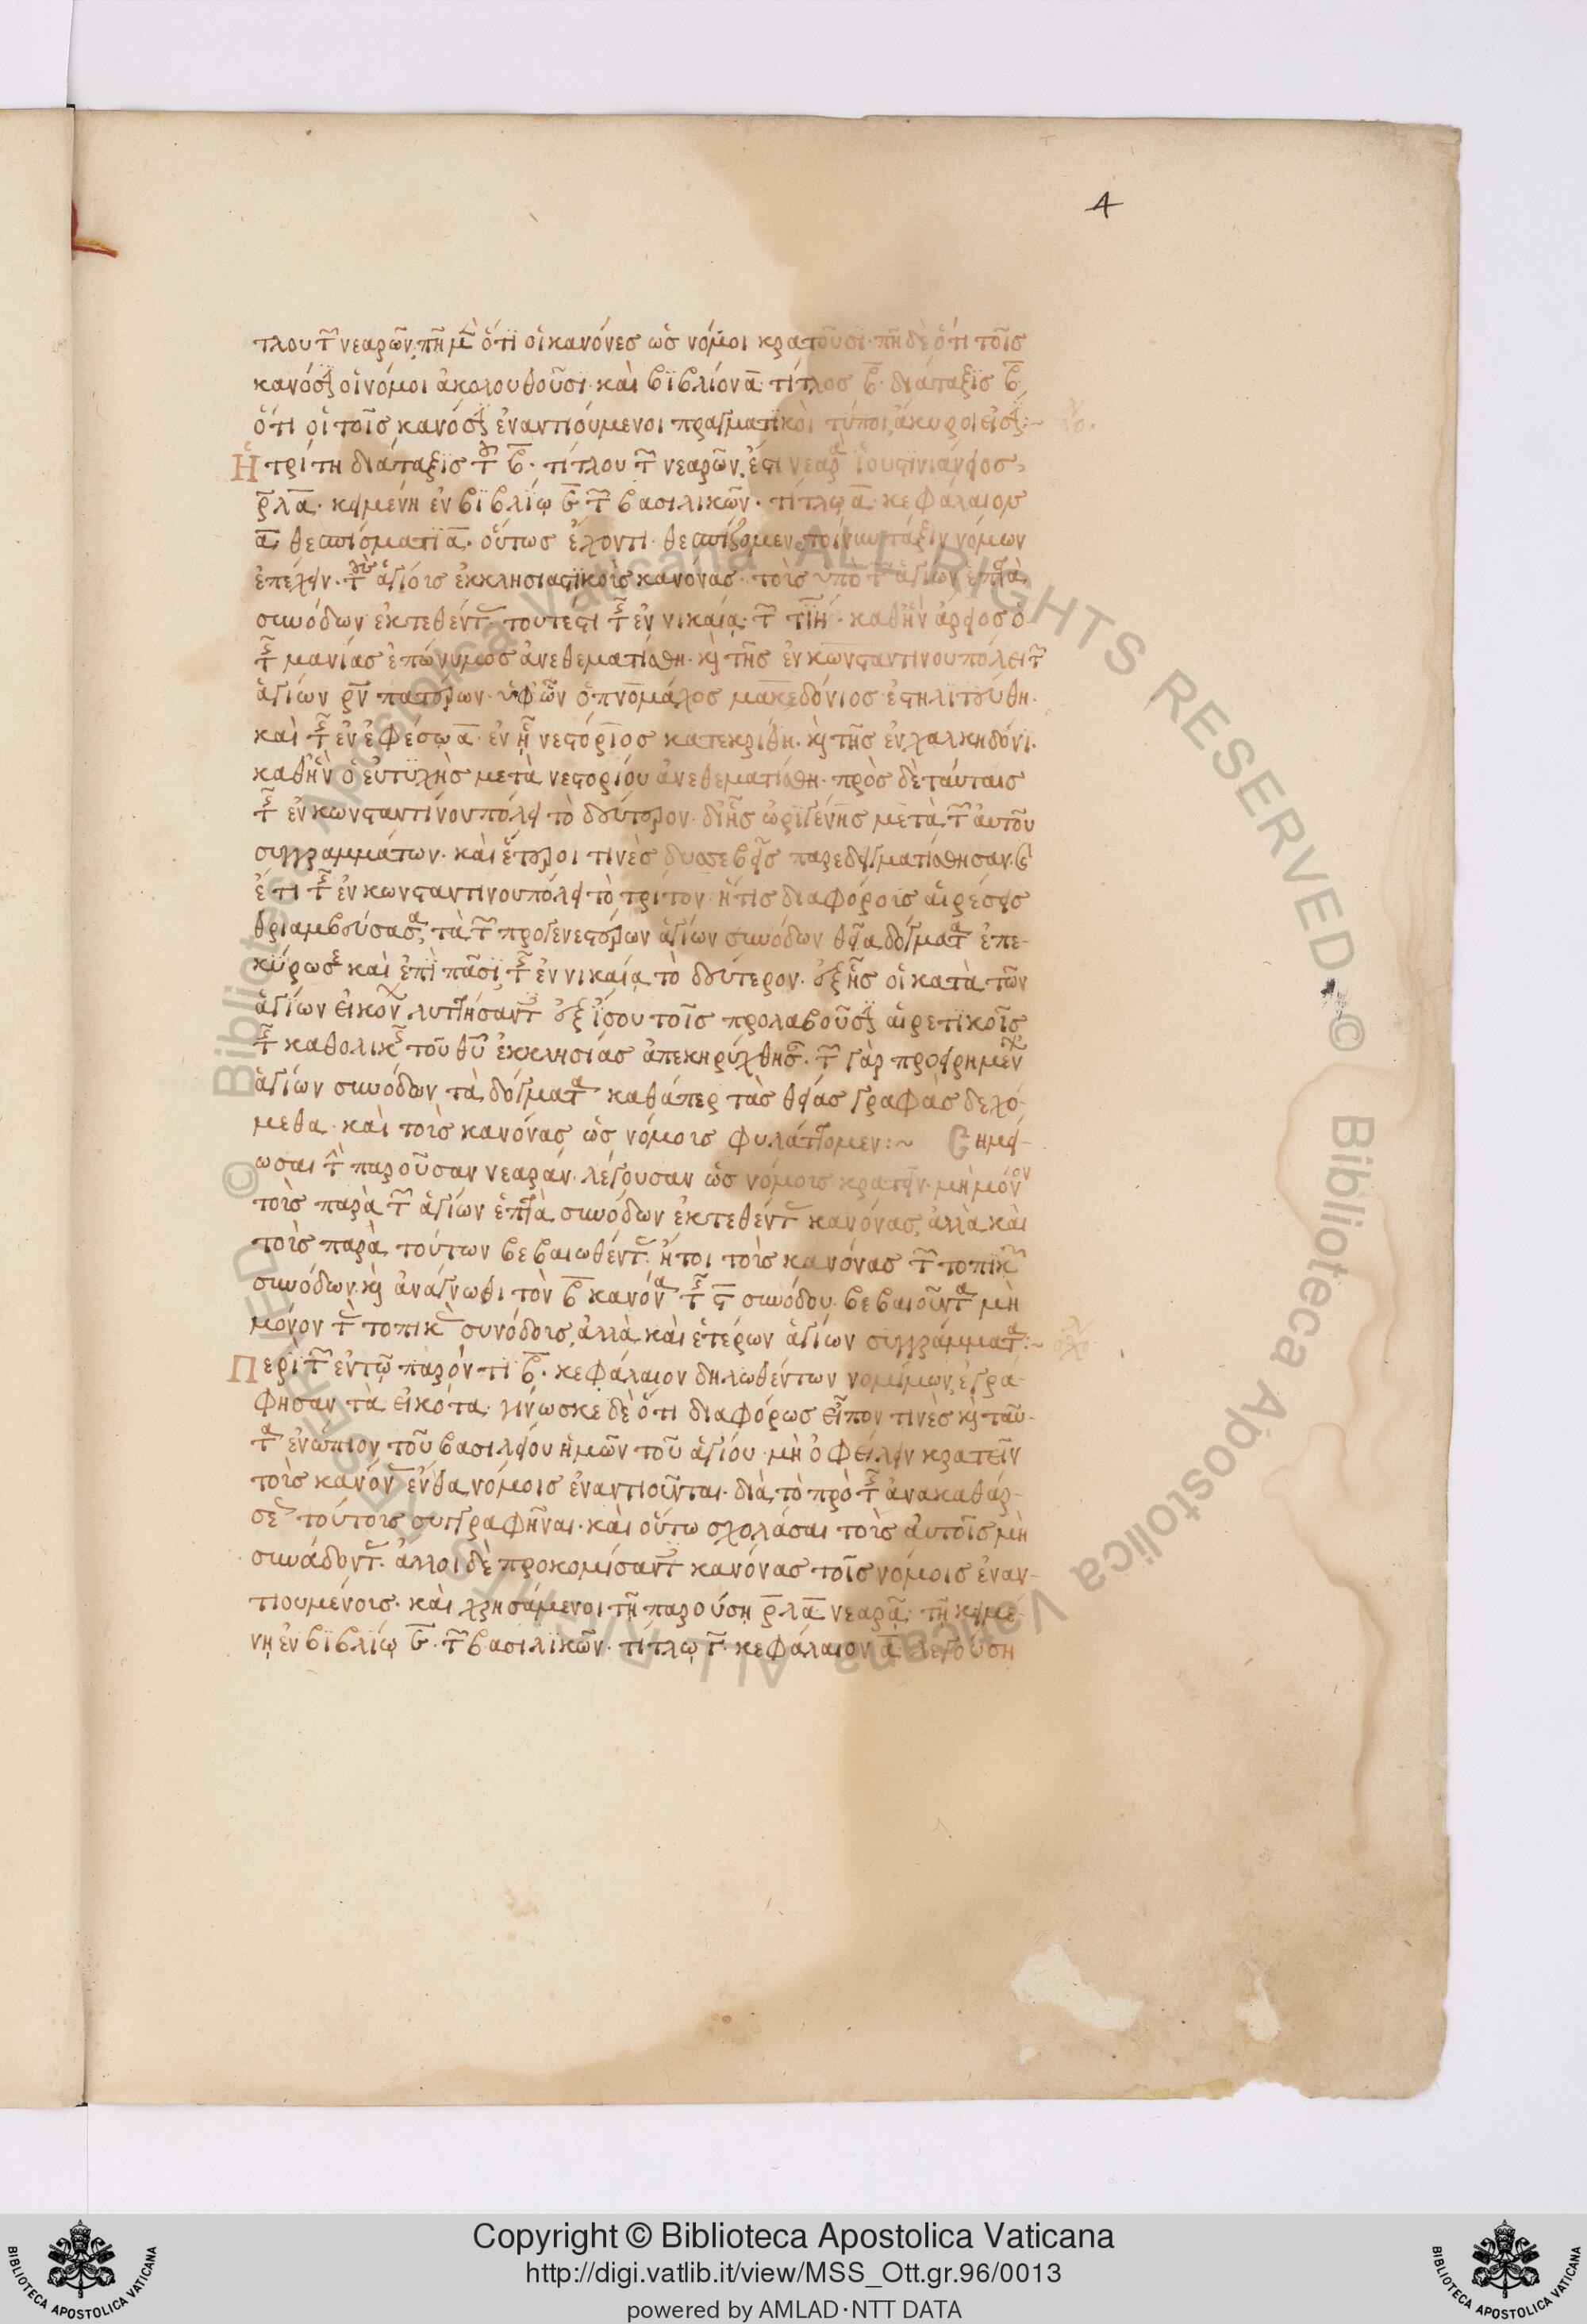 4
τλου τῶν νεαρῶν. πῆ μὲν ὅτι οἱ κανόνες ὡς νόμοι κρατοῦσι. πῆ δὲ ὅτι τοῖς
κανόσιν οἱ νόμοι ἀκολουθοῦσι. καὶ βιβλίον α. τίτλος β. διάταξις β.
ὅτι οἱ τοῖς κανόσιν ἐναντιούμενοι πραγματικοὶ τύποι, ἄκυροί εἰσιν:~
Ἡ τρίτη διάταξις τοῦ β. τίτλου τῶν νεαρῶν, ἔστι νεαρὰ ἰουστινιάνειος,
ρλα. κειμένη ἐν βιβλίῳ ε. τῶν βασιλικῶν. τίτλῳ α. κεφάλαιον
α, θεσπίσματι α. οὕτως ἔχοντι. θεσπίζομεν τοίνυν τάξιν νόμων
ἐπέχειν. τοὺς ἁγίους ἐκκλησιαστικοὺς κανόνας. τοὺς ὑπὸ τῶν ἁγίων ἑπτὰ
συνόδων ἐκτεθέντας. τουτέστι τῆς ἐν νικαίᾳ. τῶν τιη. καθ' ἣν ἄρειος ὁ
τῆς μανίας ἐπώνυμος ἀνεθεματίσθη. καὶ τῆς ἐν κωνσταντινουπόλει τῶν
ἁγίων ρν πατέρων. ὑφ' ὧν ὁ πνομάχος μακεδόνιος ἐστηλιτεύθη.
καὶ τῆς ἐν ἐφέσῳ α. ἐν ᾗ νεστόριος κατεκρίθη. καὶ τῆς ἐν χαλκηδόνι.
καθ' ἣν ὁ εὐτυχὴς μετὰ νεστορίου ἀνεθεματίσθη. πρὸς δὲ ταύταις
τῆς ἐν κωνσταντίνου πόλει τὸ δεύτερον. δι' ἧς ὠριγένης μετὰ τῶν αὐτοῦ
συγγραμμάτων. καὶ ἕτεροι τινὲς δυσσεβεῖς παρεδειγματίσθησαν.
ἔτι τῆς ἐν κωνσταντινουπόλει τὸ τρίτον. ἥτις διαφόροις αἱρέσεις
θριαμβεύσασα, τὰ τῶν προγενεστέρων ἁγίων συνόδων θεῖα δόγματα ἐπε-
κύρωσε καὶ ἐπὶ πᾶσι, τῆς ἐν νικαίᾳ τὸ δεύτερον. ἐξ ἧς οἱ κατὰ τῶν
ἁγίων εἰκόνων λυττήσαντες ἐξ ἴσου τοῖς προλαβοῦσιν αἱρετικοῖς
τῆς καθολικῆς τοῦ θυ ἐκκλησίας ἀπεκηρύχθησαν. τῶν γὰρ προειρημένων
ἁγίων συνόδων τὰ δόγματα καθάπερ τὰς θείας γραφὰς δεχό-
μεθα. καὶ τοὺς κανόνας ὡς νόμους φυλάττομεν:~ Σημεί-
ωσαι τὴν παροῦσαν νεαράν. λέγουσαν ὡς νόμους κρατεῖν. μὴ μόνον
τοὺς παρὰ τῶν ἁγίων ἑπτὰ συνόδων ἐκτεθέντας κανόνας, ἀλλὰ καὶ
τοὺς παρὰ τούτων βεβαιωθέντας. ἤτοι τοὺς κανόνας τῶν τοπικῶν
συνόδων. καὶ ἀνάγνωθι τὸν β κανόνα τῆς ς συνόδου. βεβαιοῦντα μὴ
μόνον τὰς τοπικὰς συνόδους, ἀλλὰ καὶ ἑτέρων ἁγίων συγγράμματα:~
Περὶ τῶν ἐν τῷ παρόντι β. κεφάλαιον δηλωθέντων νομίμων, ἐγρά-
φησαν τὰ εἰκότα. γίνωσκε δὲ ὅτι διαφόρως εἶπον τινὲς καὶ ταῦ-
τα ἐνώπιον τοῦ βασιλείου ἡμῶν τοῦ ἁγίου. μὴ ὀφείλειν κρατεῖν
τοὺς κανόνας ἔνθα νόμοις ἐναντιοῦνται. διὰ τὸ πρὸ τῆς ἀνακαθάρ-
σεως τούτους συγγραφῆναι. καὶ οὕτω σχολάσαι τοὺς αὐτοῖς μὴ
συνάδοντας. ἄλλοι δὲ προκομίσαντες κανόνας τοῖς νόμοις ἐναν-
τιουμένους. καὶ χρησάμενοι τῇ παρούσῃ ρλα νεαρᾷ. τῇ κειμέ-
νῃ ἐν βιβλίῳ ε. τῶν βασιλικῶν. τίτλῳ γ. κεφάλαιον α. λεγούσῃ
© Biblioteca Apostolica Vaticana ALL RIGHTS RESERVED
© Biblioteca Apostolica Vaticana ALL RIGHTS RESERVED
Copyright © Biblioteca Apostolica Vaticana
http://digi.vatlib.it/view/MSS_Ott.gr.96/0013
powered by AMLAD·NTT DATA
BIBLIOTECA APOSTOLICA VATICANA
BIBLIOTECA APOSTOLICA VATICANA